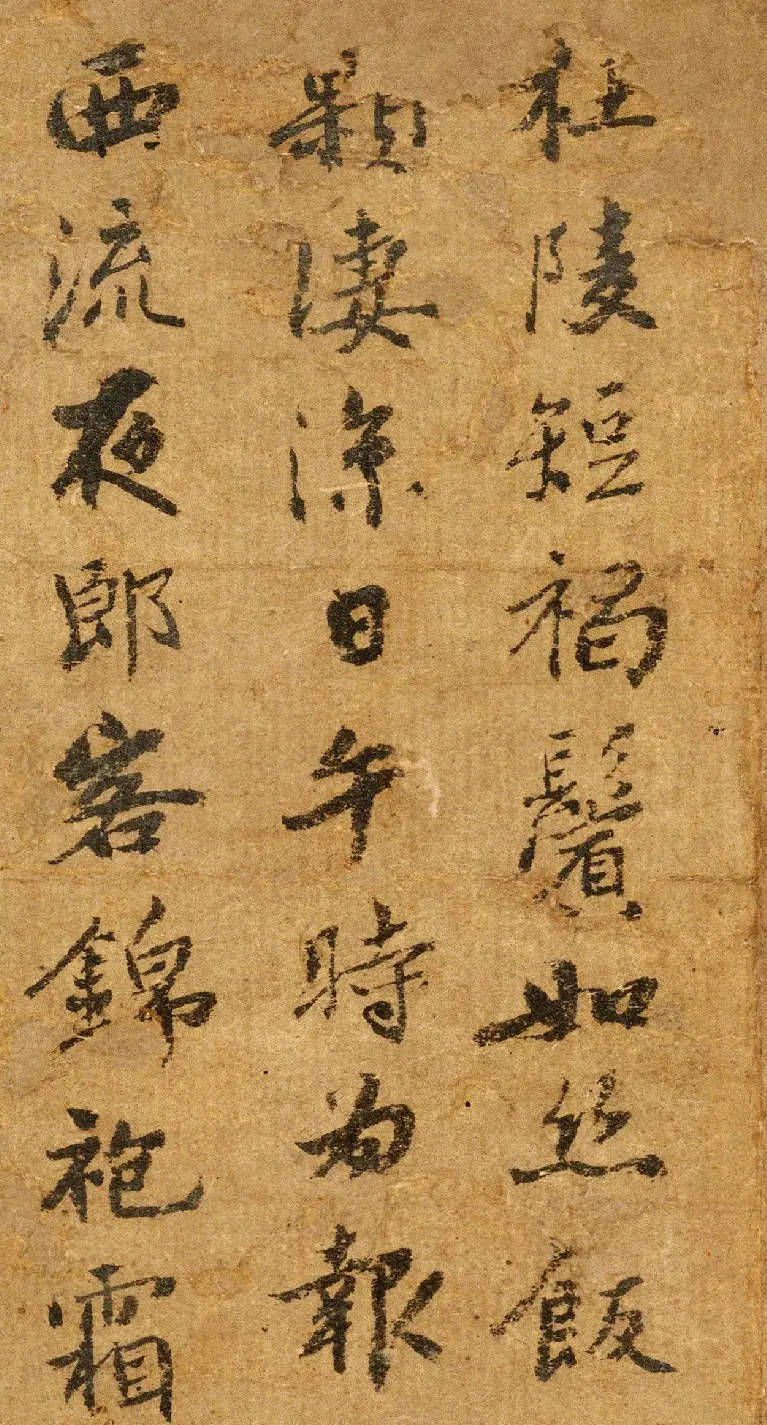 杜陵短褐鬢如絲飯
顆淒涼日午時為報
西流夜郎客錦袍霜